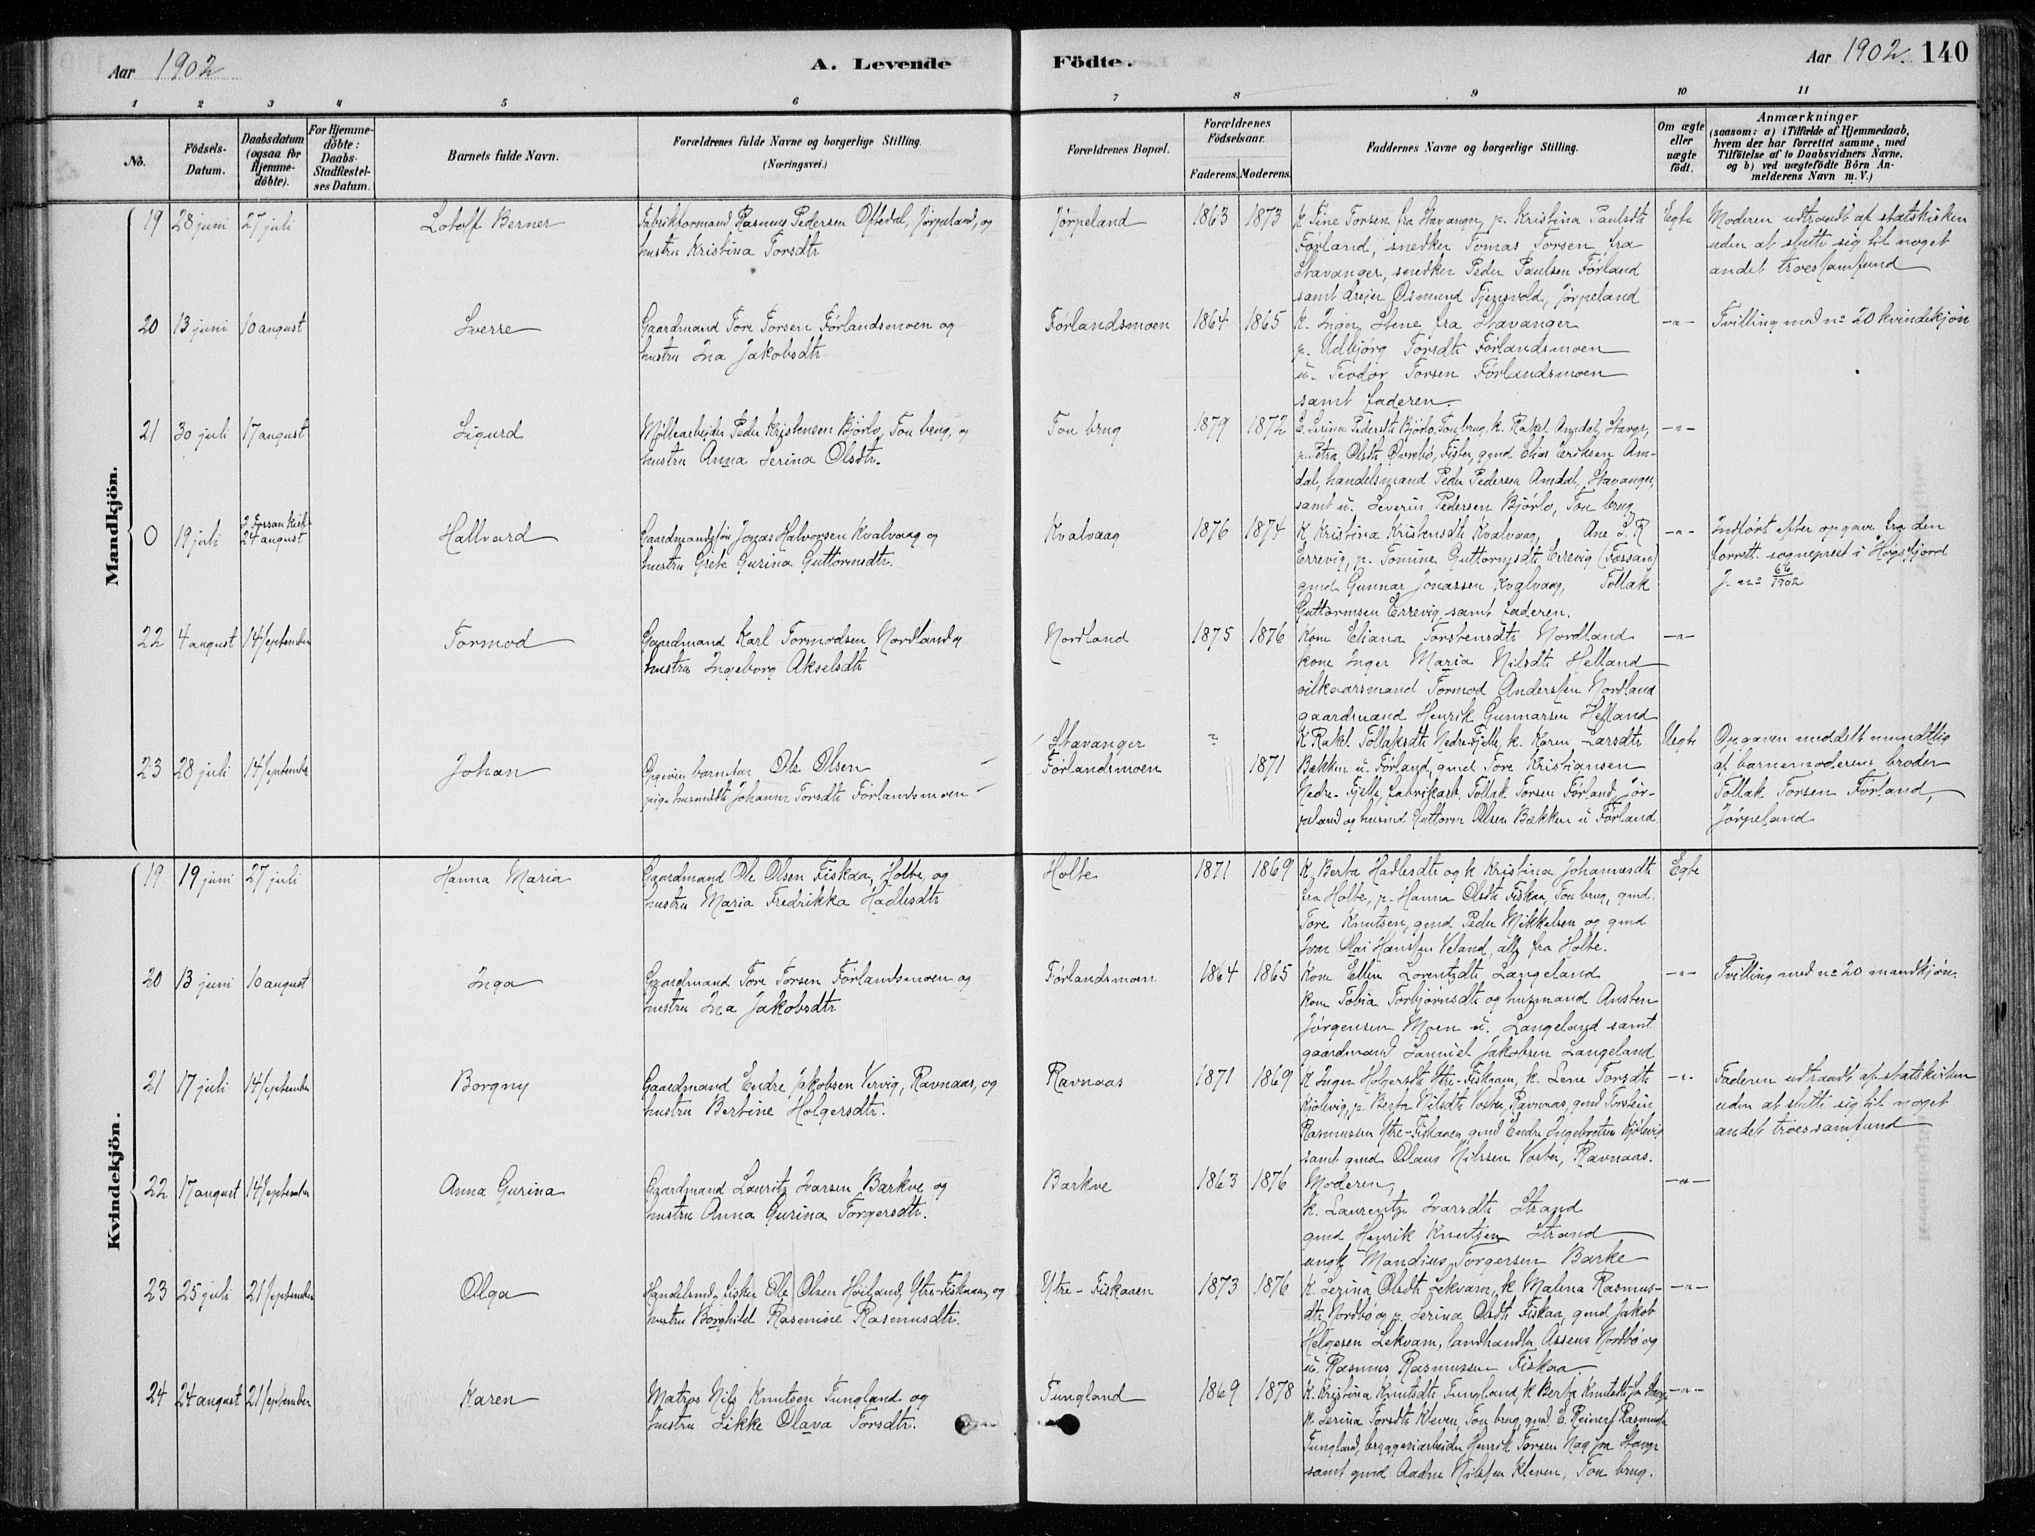 Aar 1902
A. Levende
Födte.
Aar 1902. 140
1 2 3 4 5 6 7 8 9 10 11
No.
Födsels-Datum.
Daabsdatum (ogsaa for Hjemme-döbte).
For Hjemme-döbte: Daabs-Stadfæstel-ses Datum.
Barnets fulde Navn.
Forældrenes fulde Navne og borgerlige Stilling. (Næringsvei.)
Forældrenes Bopæl.
Forældrenes Födselsaar.
Faderens. Moderens.
Faddernes Navne og borgerlige Stilling.
Om ægte eller uægte födt.
Anmærkninger
(saasom: a) i Tilfælde af Hjemmedaab, hvem der har forrettet samme, med Tilföielse af to Daabsvidners Navne, og b) ved uægtefödte Börn An-melderens Navn m. V.)
Mandkjön.
19 28 juni 27 juli
Lotolf Berner
Fabrikformand Rasmus Pedersen Oftedal, Jørpeland, og
hustru Kristina Torsdtr
Jørpeland 1863 1873
K. Tine Torsen fra Stavanger, p. Kristina Paulsdtr
Førland, snedker Tomas Torsen fra
Stavanger, snedker Peder Paulsen Førland
samt drejer Osmund Tjensvold, Jørpeland
Egte
Moderen udtraadt af statskirken
uden at slutte sig til noget
andet troessamfund
20 13 juni 10 august
Sverre
Gaardmand Tore Torsen Førlandsmoen og
hustru Ina Jakobsdtr
Førlandsmoen 1864 1865
K. Ingr. Stene fra Stavanger
p. Udbjörg Torsdtr Førlandsmoen
u. Teodor Torsen Førlandsmoen
samt faderen.
-"-
Tvilling med no 20 kvindekjøn
21 30 juli 17 august
Sigurd
Møllearbejder Peder Kristensen Bjørlo, Tou brug, og
hustru Anna Serina Olsdtr.
Tou brug 1879 1872
E. Serina Pedersdtr Bjørlo, Tou brug, k. Rakel Amdal, Stavgr,
p. Petra Olsdtr Øvrebø, Fister, gmd Elias Eriksen Am-
dal, handelsmand Peder Pedersen Amdal, Stavanger,
samt u. Severin Pedersen Bjørlo, Tou brug
-"-
0 19 juli
24 august
Hallvard
Gaardmandssøn Jonas Halvorsen Kvalvaag og
hustru Grete Gurina Guttormsdtr.
Kvalvaag 1876 1874
K Kristina Kristensdtr Kvalvaag, Ane S. R
Errevig, p. Tomine Guttormsdtr Errevig (Fossan)
gmd Gunnar Jonassen Kvalvaag, Tollak
Guttormsen Errevig samt faderen.
-"-
Indført efter opgave fra den
forrett. sogneprest i Høgsfjord
J. no 66/1902
22 4 august 14 september
Tormod
Gaardmand Karl Tormodsen Nordland og
hustru Ingeborg Akselsdtr
Nordland 1875 1876
Kone Eliana Torstensdtr Nordland
kone Inger Maria Nilsdtr Helland
vilkaarsmand Tormod Anderssen Nordland
gaardmand Henrik Gunnarsen Helland
-"-
23 28 juli 14 september
Johan
Opgiven barnefar Ole Olsen
pige husmdtr Johanne Torsdtr Førlandsmoen
Stavanger ?
Førlandsmoen 1871
K Rakel Tollaksdtr Nedre-Fjelle, k. Karen Larsdtr
Bækken u. Førland, gmd Tore Kristiansen
Nedre-Fjelle, fabrikarb. Tollak Torsen Førland, Jør-
peland og husmd Guttorm Olsen Bækken u Førland.
Uegte
Opgaven meddelt mundtlig
af barnemoderens broder
Tollak Torsen Førland,
Jørpeland
Kvindekjön.
19 19 juni 27 juli
Hanna Maria
Gaardmand Ole Olsen Fiskaa, Holte, og
hustru Maria Fredrikka Hadlesdtr
Holte 1871 1869
K. Berta Hadlesdtr og k Kristina Johannesdtr
fra Holte, p. Hanna Olsdtr Fiskaa, Tou brug, gmd.
Tore Knutsen, gmd Peder Mikkelsen og gmd
Ivar Olai Hanssen Veland, alle fra Holte.
Egte
20 13 juni 10 august
Inga
Gaardmand Tore Torsen Førlandsmoen og
hustru Ina Jakobsdtr
Førlandsmoen 1864 1865
Kone Ellen Lorentzdtr Langeland
kone Tobia Torbjørnsdtr og husmand Ansten
Jørgensen Moen u. Langeland samt
gaardmand Samuel Jakobsen Langeland
-"-
Tvilling med no 20 mandkjøn.
21 17 juli 14 september
Borgny
Gaardmand Endre Jakobsen Vervig, Ravnaas, og
hustru Bertine Holgersdtr.
Ravnaas 1871 1869
K Inger Holgersdtr Ytre-Fiskaaen, k. Lene Torsdtr
Kjølevig, p. Berta Nilsdtr Voster, Ravnaas, gmd Torstein
Rasmussen Ytre-Fiskaaen, gmd Endre Ingebretsen Kjølevig
samt gmd Olaus Nilssen Voster, Ravnaas.
-"-
Faderen udtraadt af statskirken
uden at slutte sig til noget
andet troessamfund
22 17 august 14 september
Anna Gurina
Gaardmand Lauritz Ivarsen Barkve og
hustru Anna Gurina Torgersdtr.
Barkve 1863 1876
Moderen,
k. Laurentze Ivarsdtr Strand
gmd Henrik Knutsen Strand
ungk. Mandius Torgersen Barke
-"-
23 25 juli 21 september
Olga
Handelsmd, fisker Ole Olsen Høiland, Ytre-Fiskaaen, og
hustru Borghild Rasmine Rasmusdtr.
Ytre-Fiskaaen 1873 1876
K. Serina Olsdtr Lekvam, k Malena Rasmus-
dtr Nordbø og p. Serina Olsdtr Fiskaa, gmd Jakob
Helgesen Lekvam, landhandler Assens Nordbø og
u. Rasmus Rasmussen Fiskaa
-"-
24 24 august 21 september
Karen
Matros Nils Knutsen Tungland og
hustru Sikke Olava Torsdtr.
Tungland 1869 1878
K. Kristina Knutsdtr Tungland, k Berta Knutsdtr fra Stavgr
k. Serina Torsdtr Kleven, Tou brug, gmd E. Reinert Rasmussen
Tungland, bryggeriarbeider Henrik Torsen Nag fra Stavgr
samt gmd Aadne Nilssen Kleven, Tou brug.
-"-